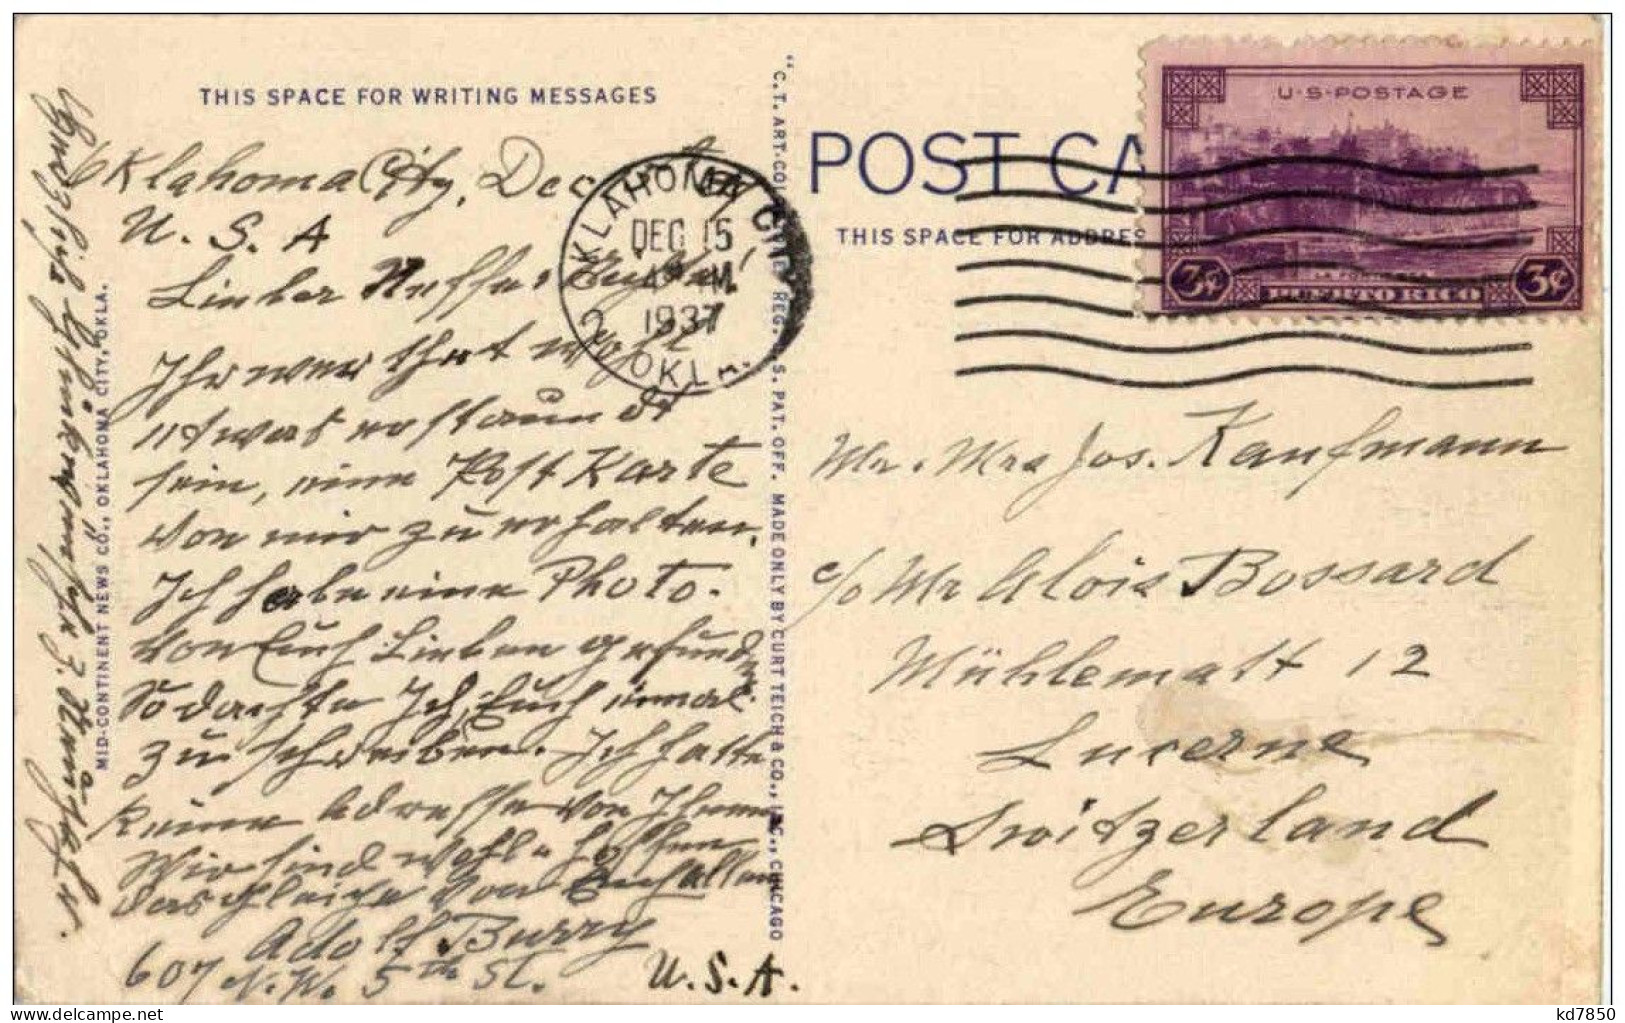 THIS SPACE FOR WRITING MESSAGES
Oklahoma City, Dec
U. S. A
Lieber Neffe &
Ihr werdet wohl
etwas erstaunt
sein, eine Post Karte
von mir zu erhalten.
Ich habe eine Photo.
von Euch Lieben gefunden
So dachte Ich, Euch einmal
zu schreiben. Ich hatte
keine Adresse von Ihnen
Wir sind wohl & hoffen
das Gleiche von Euch allen
Adolf Burry
607 N.W. 5th St. U.S.A.
MID-CONTINENT NEWS CO., OKLAHOMA CITY, OKLA.
"C.T. ART-COL REG. U.S. PAT. OFF. MADE ONLY BY CURT TEICH & CO., INC., CHICAGO
OKLAHOMA CITY
DEC 15
4 PM
1937
2 OKLA.
POST CA
THIS SPACE FOR ADDRES
U·S·POSTAGE
LA FORTALEZA
3¢ PUERTO RICO 3¢
Mr. Mrs Jos. Kaufmann
c/o Mr Alois Bossard
Mühlematt 12
Lucerne
Switzerland
Europe
kd7850